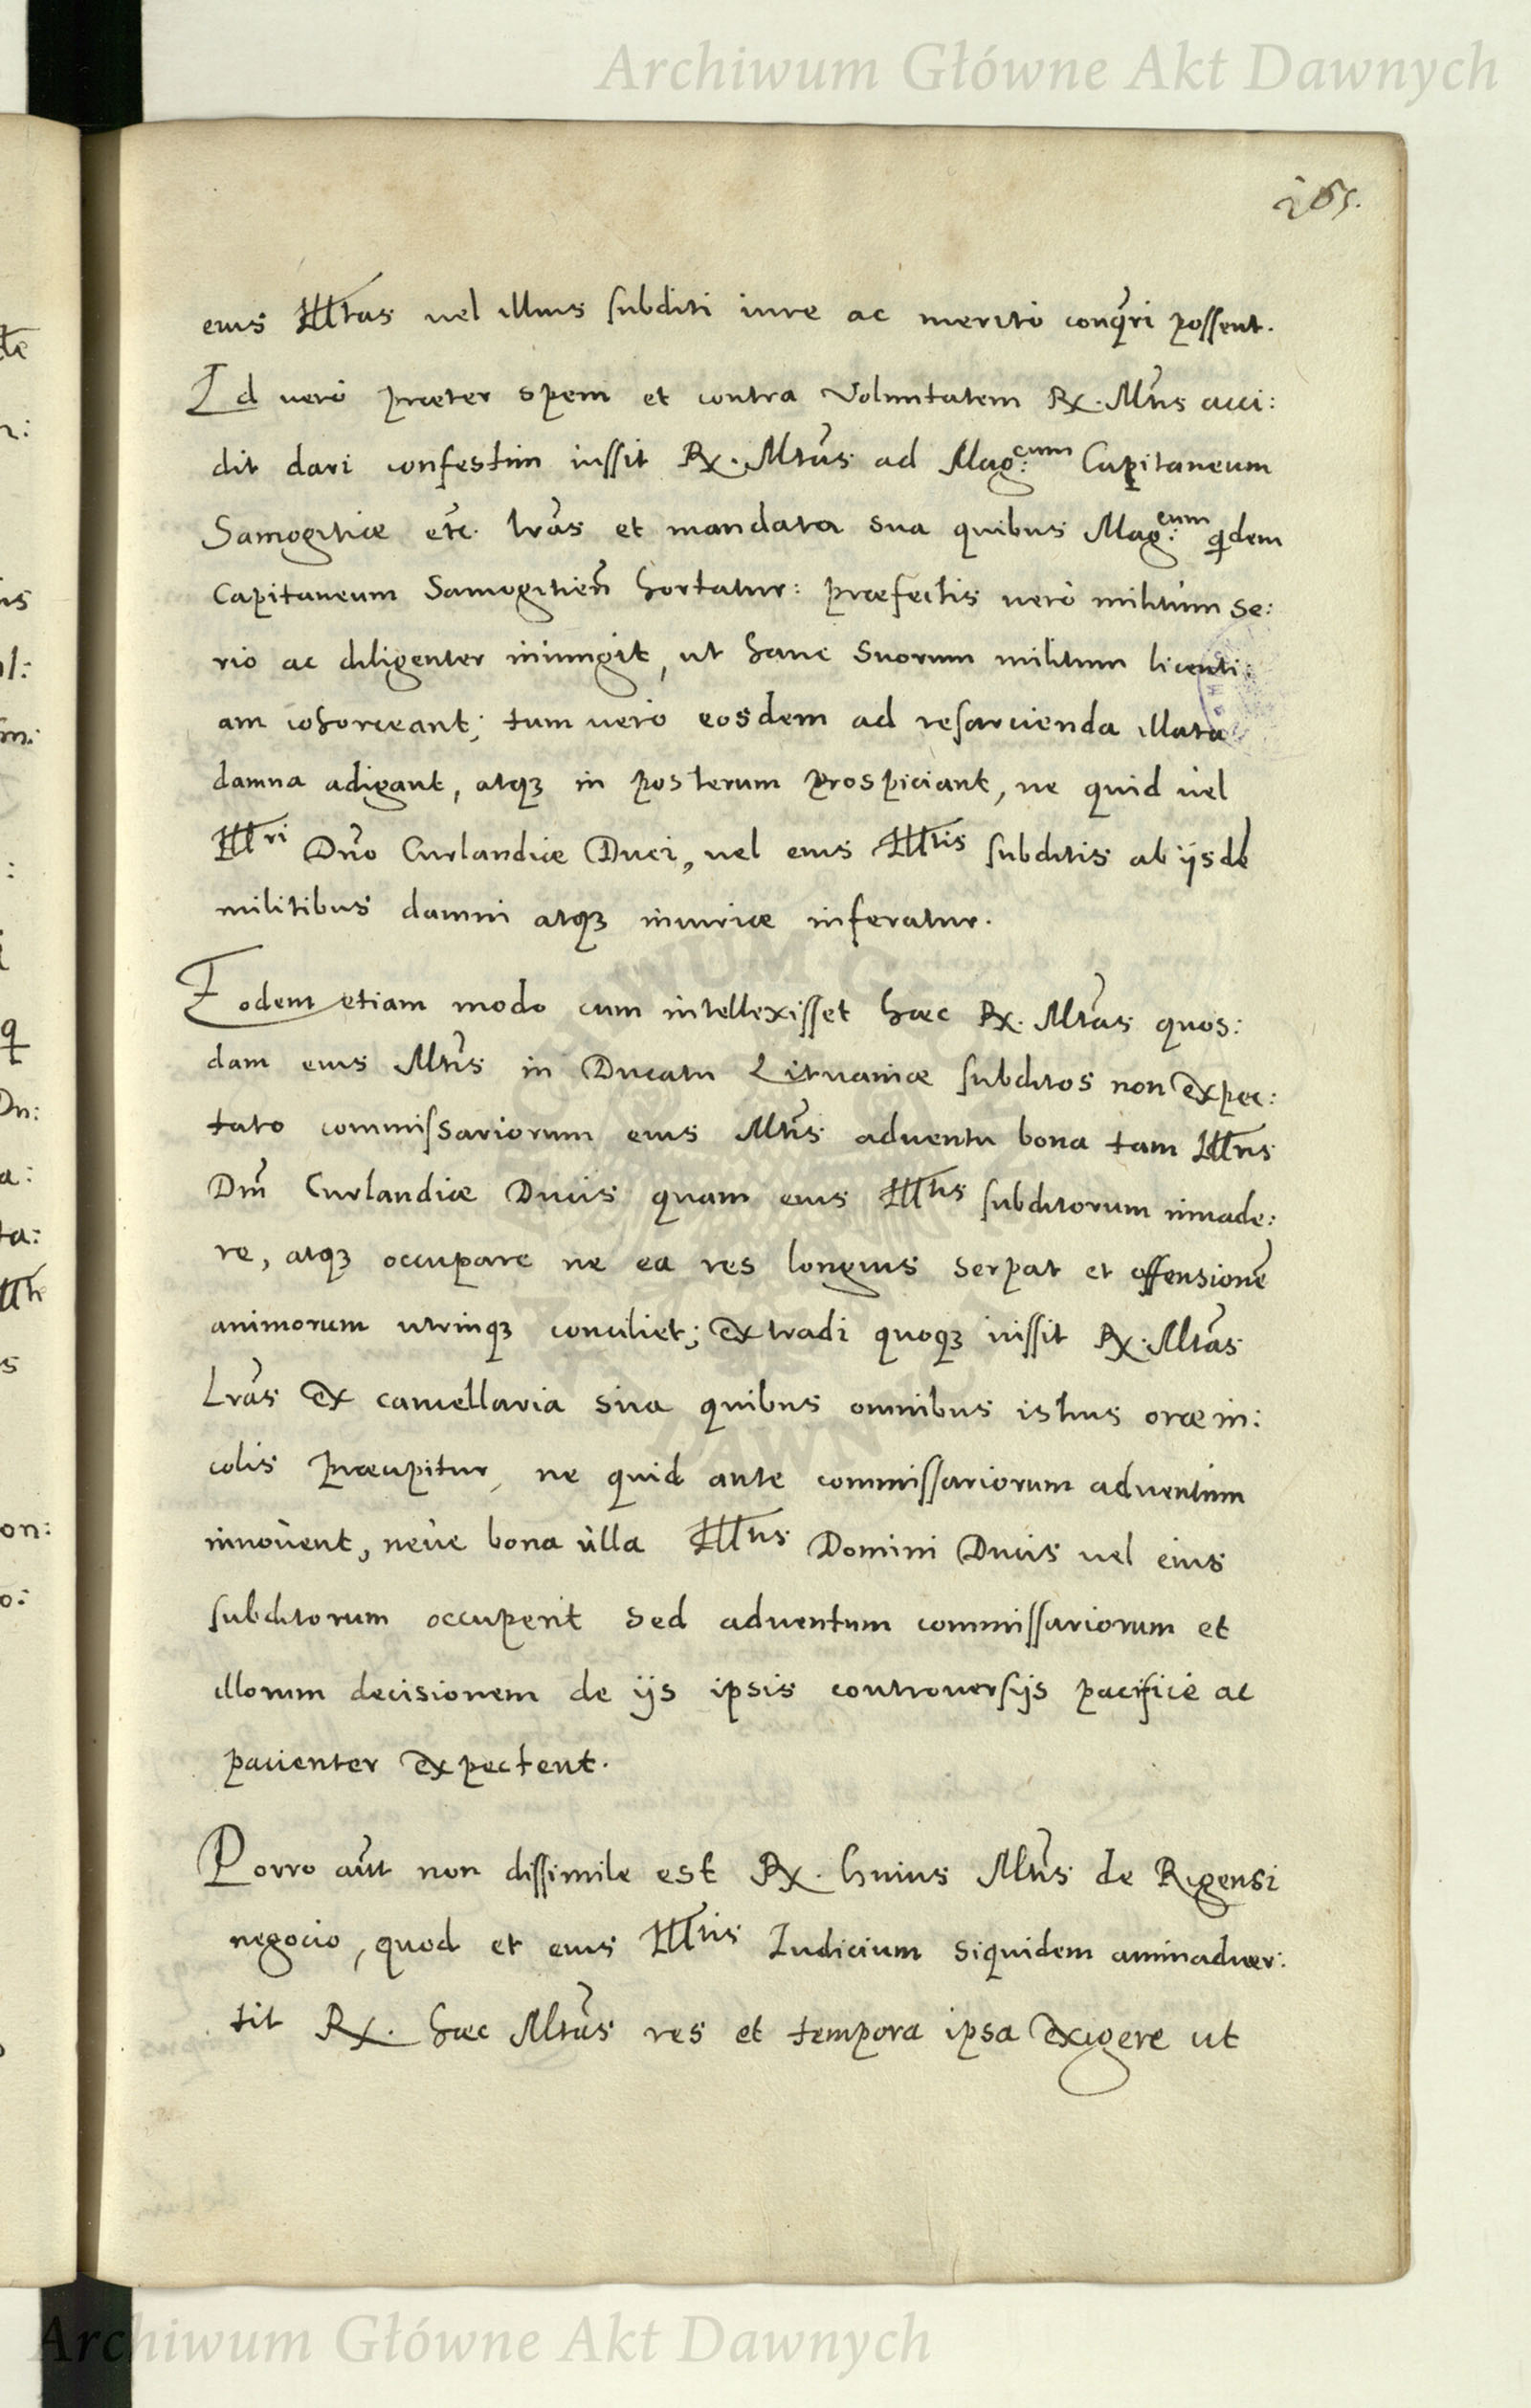 Archiwum Główne Akt Dawnych
eius Illtas uel illius subditi iure ac meritò conqri possent.
Id verò præter spem et contra Voluntatem Rx. Mtis acci:
dit dari confestim iussit Rx. Mtas ad Mag:cum Capitaneum
Samogitiæ etc. lras et mandata sua quibus Mag:cum qdem
Capitaneum Samogitien hortatur: præfectis verò militum se:
rio ac diligenter iniungit, ut hanc suorum militum licenti:
am cohorceant; tum verò eosdem ad resarcienda illata
damna adigant, atqz in posterum prospiciant, ne quid vel
Illri Dno Curlandiæ Duci, vel eius Illtis subditis ab ijsde
militibus damni atqz iniuriæ inferatur.
Eodem etiam modo cum intellexisset hæc Rx. Mtas quos:
dam eius Mtis in Ducatu Lituaniæ subditos non expec:
tato commissariorum eius Mtis adventu bona tam Illris
Dni Curlandiæ Ducis quam eius Illtis subditorum inuade:
re, atqz occupare ne ea res longius serpat et offensione
animorum utrinqz conciliet; extradi quoqz iussit Rx. Mtas
Lras ex cancellaria sua quibus omnibus istius oræ in:
colis præcipitur, ne quid ante commissariorum adventum
innovent, neve bona ulla Illris Domini Ducis vel eius
subditorum occupent sed adventum commissariorum et
illorum decisionem de ijs ipsis controversijs pacificè ac
pacienter expectent.
Porro aut non dissimile est Rx. huius Mtis de Rigensi
negocio, quod et eius Illtis Iudicium siquidem animaduer:
tit Rx. hæc Mtas res et tempora ipsa exigere ut
Archiwum Główne Akt Dawnych